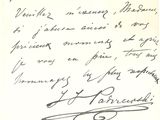 Veuillez m'excuser, Madame,
si j'abuse ainsi de vos
précieux moments et agréez
je vous en prie, tous mes
hommages les plus
I J Paderewski